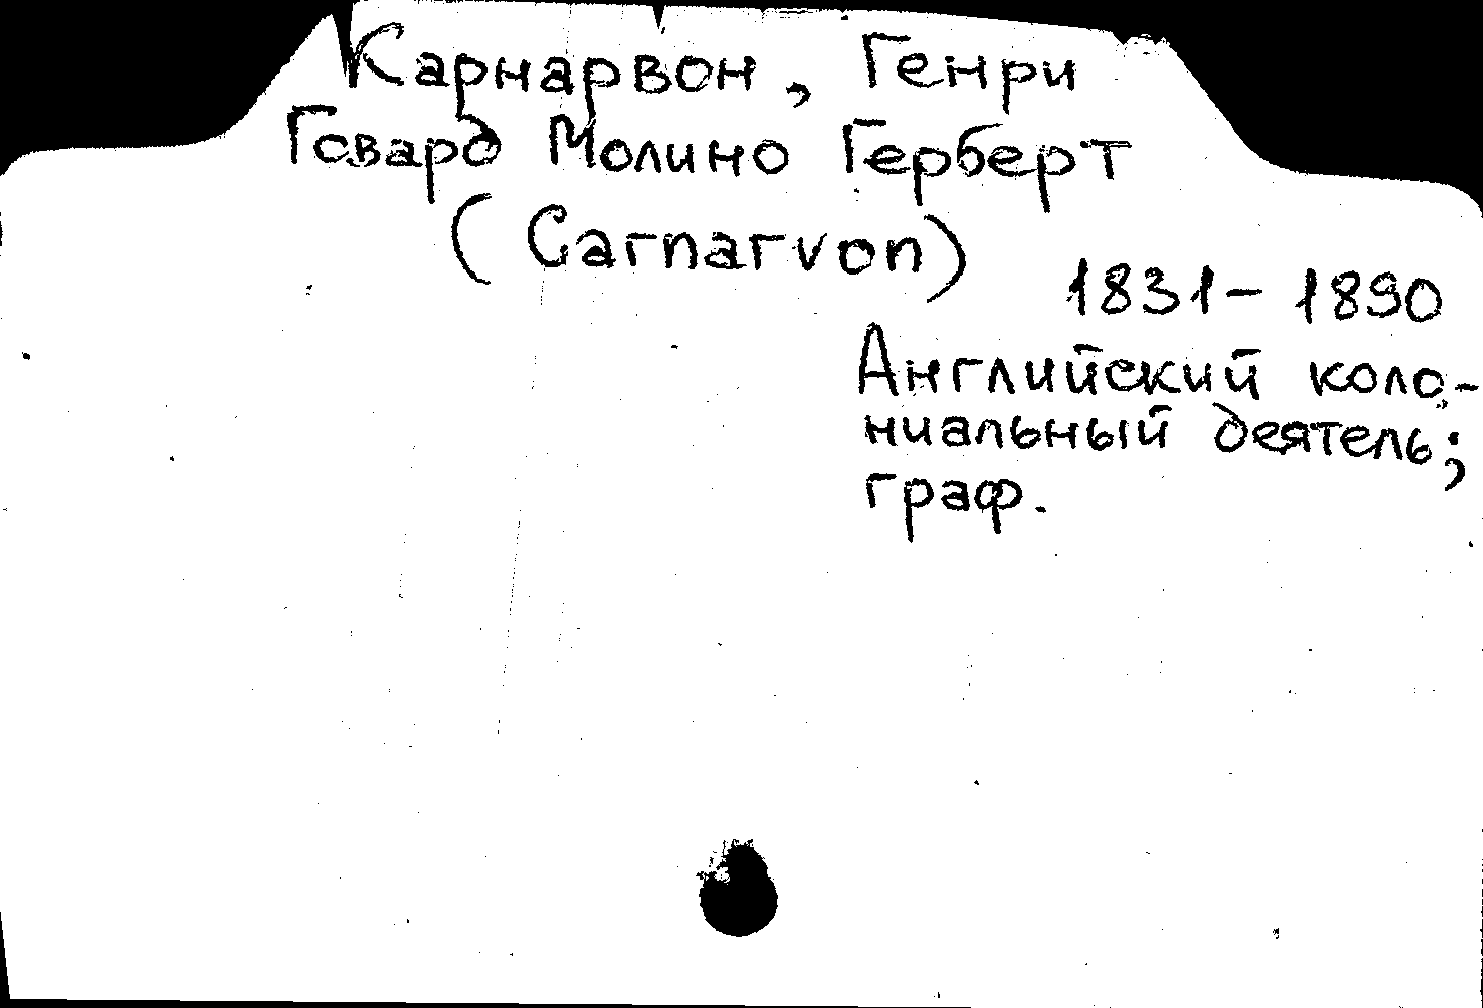 Карнарвон, Генри
Говард Молино Герберт
(Carnarvon)
1831–1890
Английский коло-
ниальный деятель;
граф.